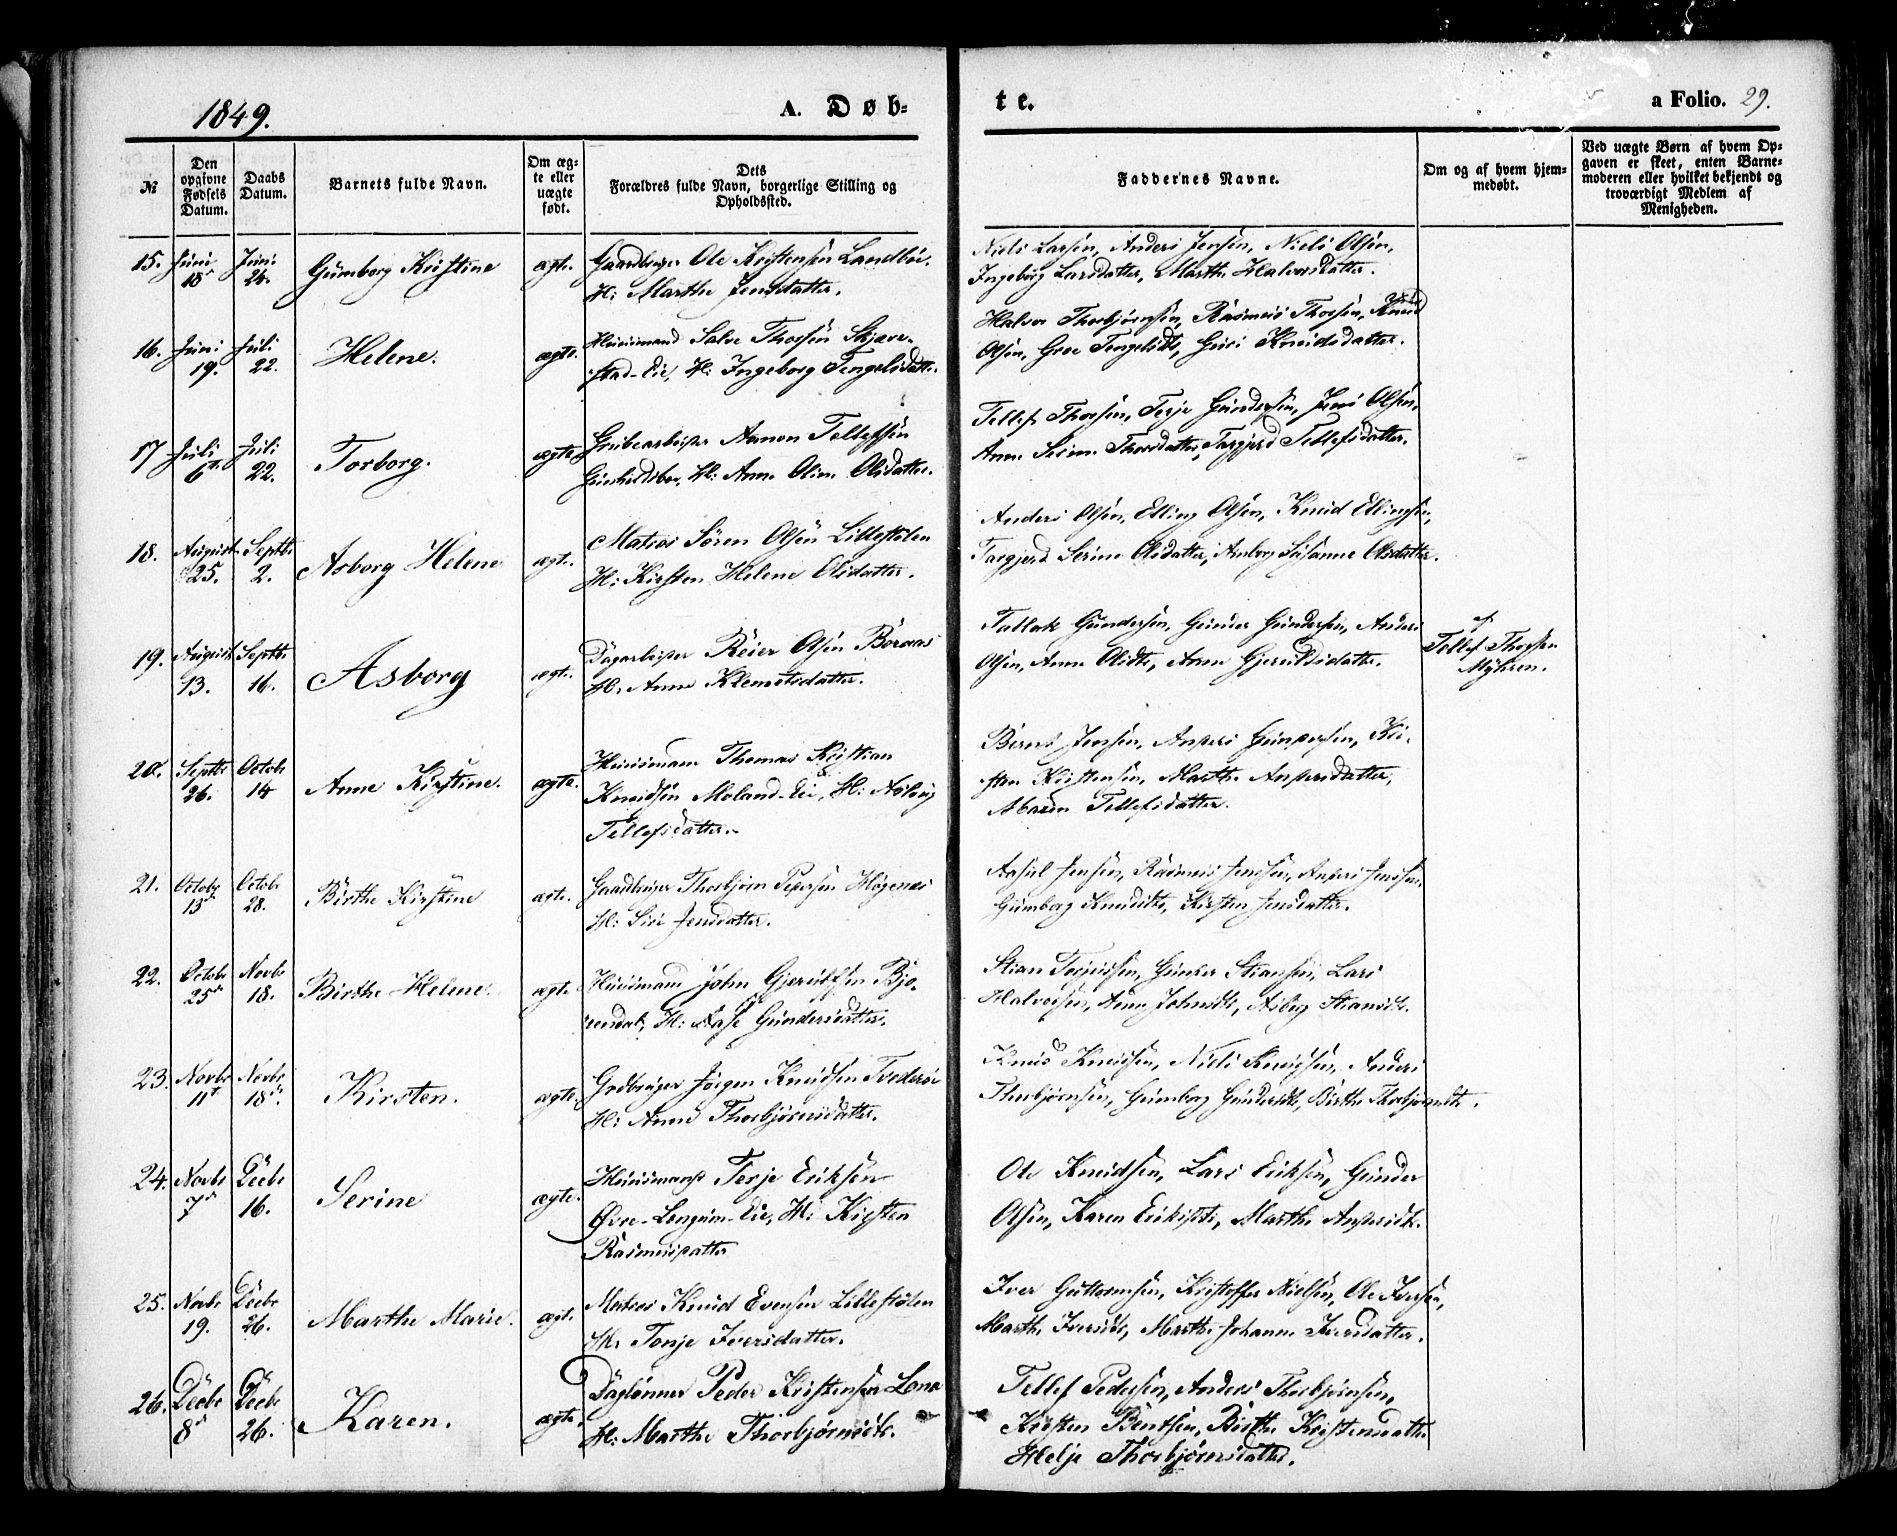 1849.
A. Døb-
te.
a Folio. 29.
№
Den opgivne Fødsels Datum.
Daabs Datum.
Barnets fulde Navn.
Om ægte eller uægte født.
Dets
Forældres fulde Navn, borgerlige Stilling og
Opholdssted.
Faddernes Navne.
Om og af hvem hjem-
medøbt.
Ved uægte Børn af hvem Op-
gaven er skeet, enten Barne-
moderen eller hvilket bekjendt og
troværdigt Medlem af
Menigheden.
15. Juni 18 Juni 24. Gunborg Kristine ægte.
Gaardbruger Ole Kristensen Landbøe.
H: Marthe Jensdatter.
Niels Larsen, Anders Jensen, Niels Olsen,
Ingeborg Larsdatter, Marthe Halvorsdatter.
16. Juni 19. Juli 22. Helene. ægte.
Huusmand Salve Thorsen Skjære-
stad-Eie, H: Ingeborg Tengelsdatter.
Halvor Thorbjørnsen, Rasmus Thorsen, Knud
Olsen, Groe Tengelsdtr, Guri Knudsdatter.
17 Juli 6te Juli 22. Torborg. ægte
Grubearbeider Aanon Tellefsen
H: Anne Oline Olsdatter.
Tellef Thorsen, Terje Gundersen, Jens Olsen,
Anne Thorsdatter, Torgjerd Tellefsdatter.
18. August 25. Septbr 2. Asborg Helene ægte.
Matros Søren Olsen Lillestølen
H: Kirsten Helene Olsdatter.
Anders Olsen, Elling Olsen, Knud Ellingsen,
Torgjerd Serine Olsdatter, Anborg Susanne Olsdatter.
19. August 13. Septbr 16. Asborg ægte.
Dagarbeider Reier Olsen Boraas
H. Anne Klemetsdatter.
Tallak Gundersen, Gunder Gundersen, Anders
Olsen, Anne Olsdtr, Anne Gjeruldsdatter.
af
Tellef Thorsen
Myhren.
20. Septbr 26. Octobr 14 Anne Kirstine. ægte.
Huusmand Thomas Kristian
Knudsen Moland-Eie, H: Aslaug
Tellefsdatter.
Bernt Jensen, Anders Gundersen, Kri-
sten Kristensen, Marthe Andersdatter,
Maren Tellefsdatter.
21. Octobr 13de Octobr 28. Birthe Kirstine ægte.
Gaardbruger Thorbjørn Pedersen Høgenæs
H: Siri Jensdatter.
Aasul Jensen, Rasmus Jensen, Anders Jensen,
Gunborg Knudsdtr, Kirsten Jensdatter.
22. Octobr 25de Novbr 18. Birthe Helene. ægte.
Huusmand John Gjerulfsen Bjo-
rendal, H: Aase Gundersdatter.
Stian Terjussen, Gunder Stiansen, Lars
Halvorsen, Anne Johnsdtr, Asborg Stiansdtr.
23. Novbr 11te Novbr 18de. Kirsten. ægte.
Grdbruger Jørgen Knudsen Tvedsrøe
H: Anne Thorbjørnsdatter.
Knud Knudsen, Niels Knudsen, Anders
Thorbjørnsen, Gunborg Gundersdtr, Birthe Thorbjørnsdtr.
24. Novbr 7de Decbr 16. Serine ægte.
Huusmand Terje Eriksen
Øvre-Longum-Eie, H: Kirsten
Rasmusdatter
Ole Knudsen, Lars Eriksen, Gunder
Olsen, Karen Eriksdtr, Marthe Andersdtr.
25. Novbr 19. Decbr 26. Marthe Marie. ægte.
Matros Knud Evensen Lillestølen
H. Tonje Iversdatter.
Iver Guttormsen, Kristoffer Nielsen, Ole Iversen,
Marthe Iversdtr, Marthe Johanne Iversdatter.
26. Decbr 8de Decbr 26. Karen. ægte.
Daglønner Peder Kristensen Lona
H: Marthe Thorbjørnsdtr.
Tellef Pedersen, Anders Thorbjørnsen,
Kirsten Bentsen, Birthe Kristensdatter
Helje Thorbjørnsdatter.